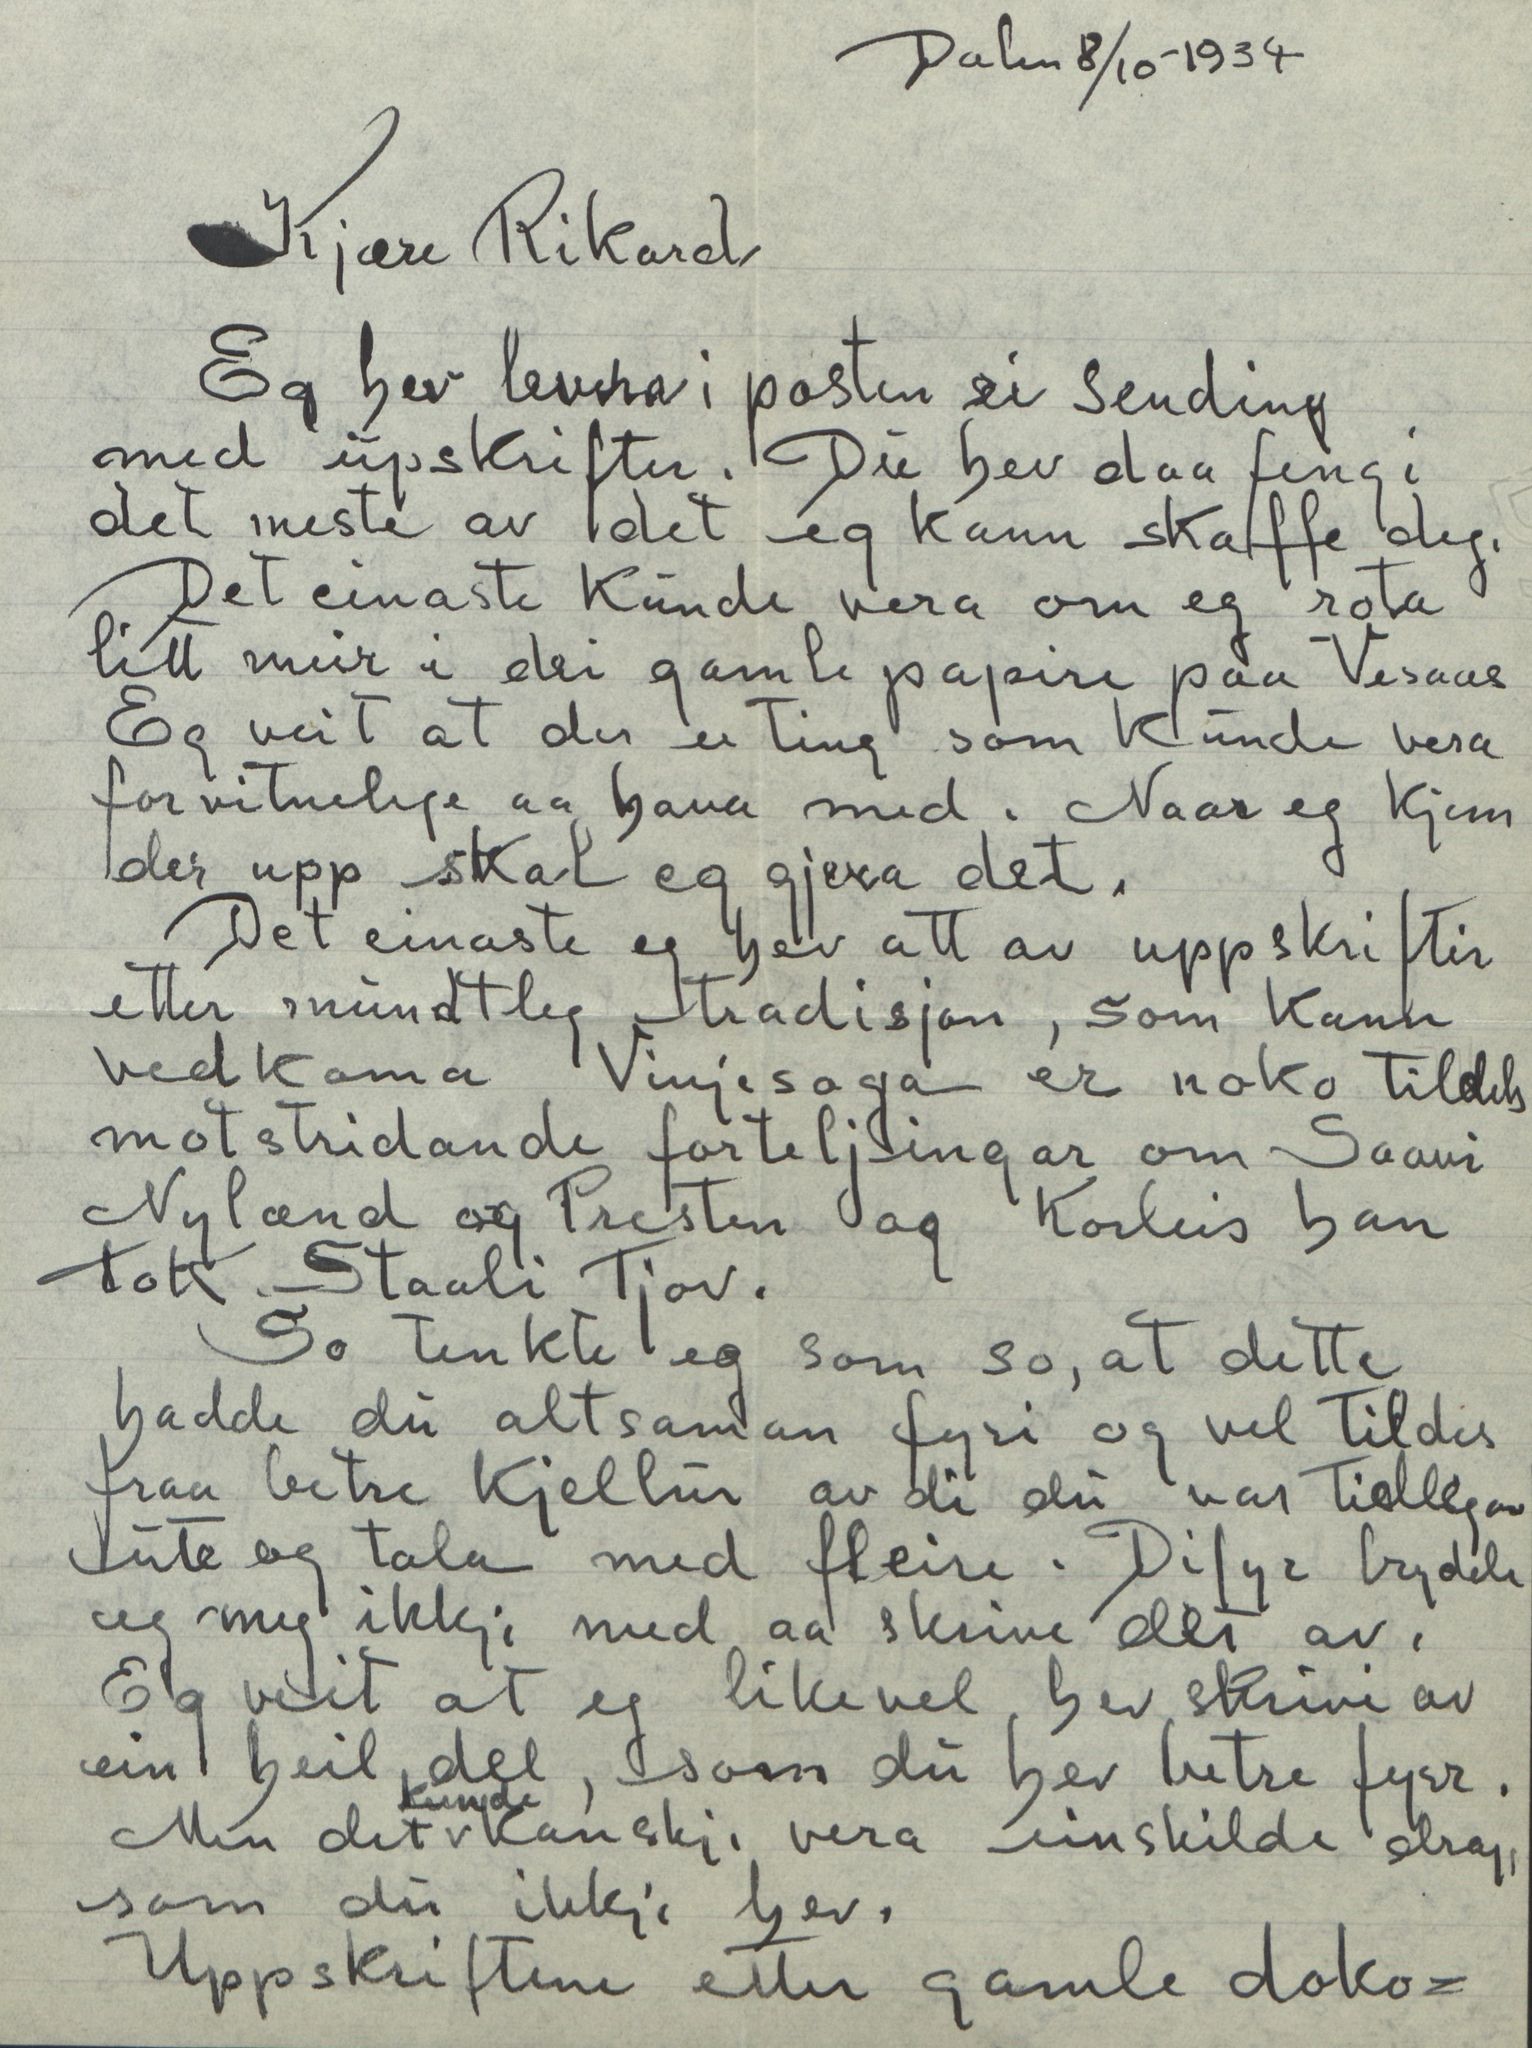 Dalen 8/10-1934
Kjære Rikard
Eg hev levera i posten ei sending
med uppskrifter. Du hev daa fengi
det meste av det eg kann skaffe deg.
Det einaste kunde vera om eg rota
litt meir i dei gamle papire paa Vesaas
Eg veit at der er ting som kunde vera
forvitnelege aa hava med. Naar eg kjem
der upp skal eg gjera det.
Det einaste eg hev att av uppskriftir
etter mundtleg tradisjon, som kann
vedkoma Vinjesoga er noko tildels
motstridande forteljingar om Saavi
Nylænd og Presten og korleis han
tok Staali Tjov.
So tenkte eg som so, at dette
hadde du altsaman fyri og vel tildes
fraa betre kjeldur av di du var tidlegar
ute og tala med fleire. Difyr brydde
eg meg ikkji med aa skrive det av.
Eg veit at eg likevel hev skrivi av
ein heil del, som du hev betre fyrr.
Men det kunde kanskji vera einskilde drag,
som du ikkji hev.
Uppskriftene etter gamle doko=